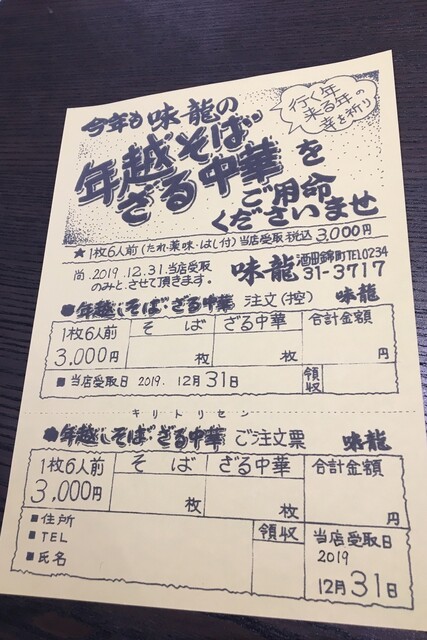 今年も味龍の
年越そば
ざる中華を
ご用命
くださいませ
行く年
来る年の
幸を祈り
★1枚6人前(たれ・薬味・はし付)当店受取税込3,000円
尚2019.12.31.当店受取
のみとさせて頂きます。
味龍 酒田錦町TEL0234
31-3717
■年越しそば・ざる中華 注文(控) 味龍
1枚6人前 そば ざる中華 合計金額
3,000円 枚 枚 円
■当店受取日 2019. 12月31日 領収
キリトリセン
■年越しそば・ざる中華 ご注文票 味龍
1枚6人前 そば ざる中華 合計金額
3,000円 枚 枚 円
■住所
■TEL
■氏名
領収
当店受取日
2019
12月31日